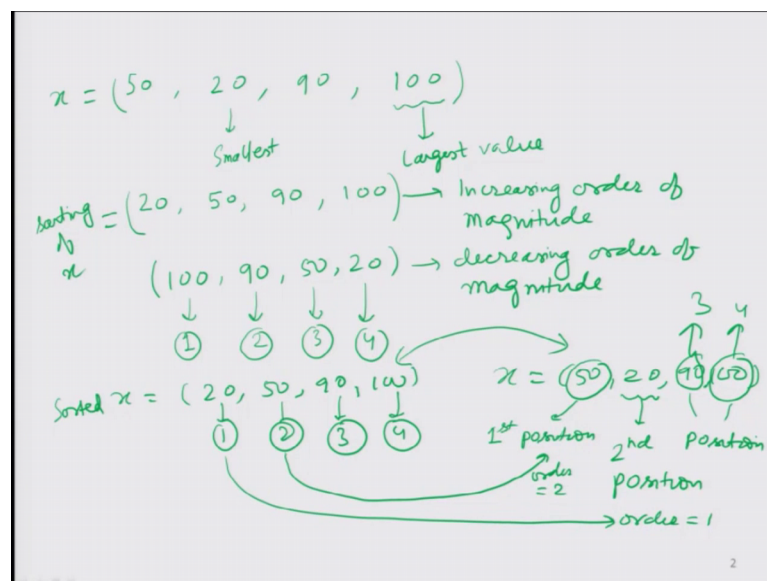 x = (50, 20, 90, 100)
Smallest
Largest value
sorting of x = (20, 50, 90, 100) → Increasing order of magnitude
(100, 90, 50, 20) → decreasing order of magnitude
① ② ③ ④
3 4
Sorted x = (20, 50, 90, 100)
① ② ③ ④
x = (50, 20, 90, 100)
1st position
order = 2
2nd position
position
order = 1
2